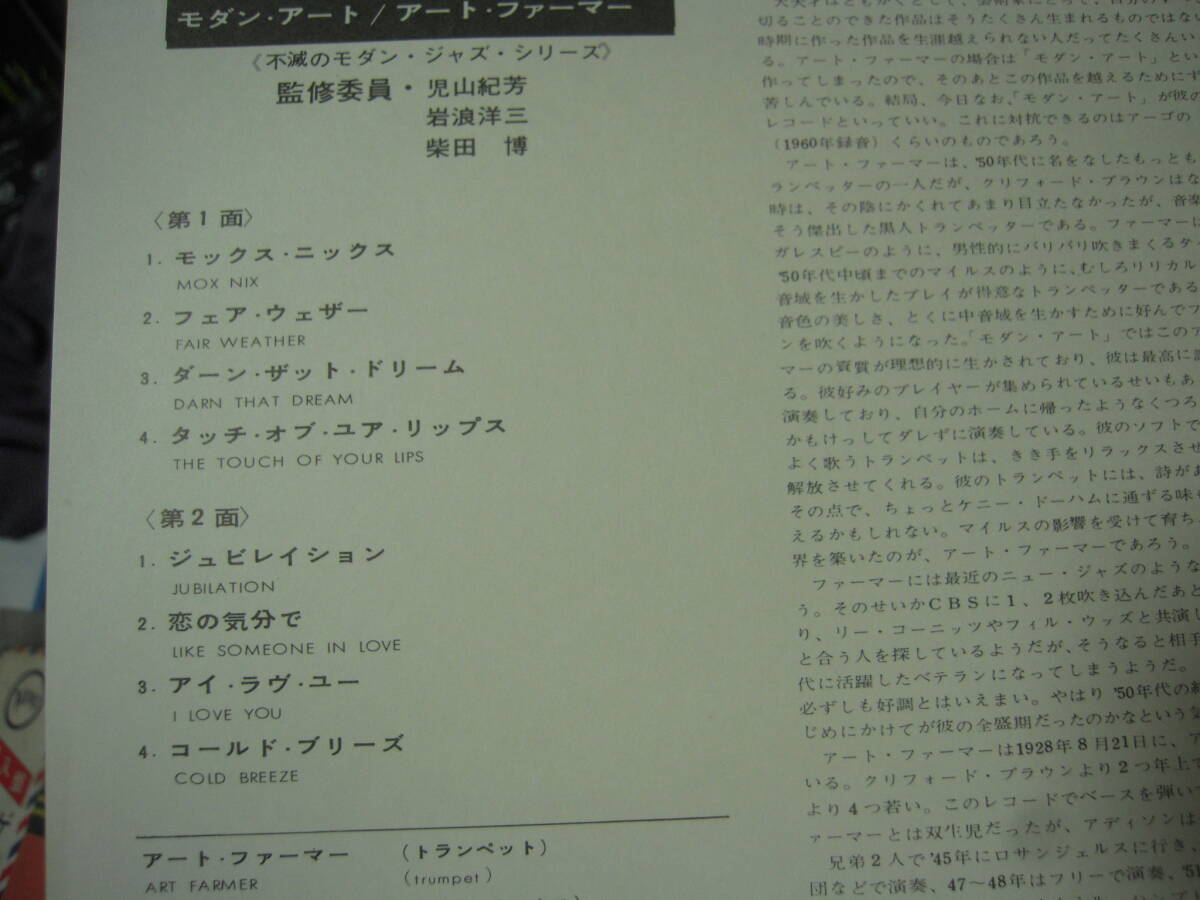 モダン・アート / アート・ファーマー
《不滅のモダン・ジャズ・シリーズ》
監修委員・児山紀芳
岩浪洋三
柴田 博
〈第1面〉
1. モックス・ニックス
MOX NIX
2. フェア・ウェザー
FAIR WEATHER
3. ダーン・ザット・ドリーム
DARN THAT DREAM
4. タッチ・オブ・ユア・リップス
THE TOUCH OF YOUR LIPS
〈第2面〉
1. ジュビレイション
JUBILATION
2. 恋の気分で
LIKE SOMEONE IN LOVE
3. アイ・ラヴ・ユー
I LOVE YOU
4. コールド・ブリーズ
COLD BREEZE
アート・ファーマー (トランペット)
ART FARMER (trumpet)
切ることのできた作品はそうたくさん生まれるものではない
時期に作った作品を生涯越えられない人だってたくさんい
る。アート・ファーマーの場合は「モダン・アート」とい
作ってしまったので、そのあとこの作品を越えるためにず
苦しんでいる。結局、今日なお、「モダン・アート」が彼の
レコードといっていい。これに対抗できるのはアーゴの
(1960年録音)くらいのものであろう。
アート・ファーマーは、'50年代に名をなしたもっとも
ランペッターの一人だが、クリフォード・ブラウンはな
時は、その陰にかくれてあまり目立たなかったが、音楽
そう傑出した黒人トランペッターである。ファーマーは
ガレスピーのように、男性的にバリバリ吹きまくるタ
'50年代中頃までのマイルスのように、むしろリリカル
音域を生かしたプレイが得意なトランペッターである
音色の美しさ、とくに中音域を生かすために好んでフ
ンを吹くようになった。「モダン・アート」ではこのア
マーの資質が理想的に生かされており、彼は最高に
る。彼好みのプレイヤーが集められているせいもあ
演奏しており、自分のホームに帰ったようなくつろ
かもけっしてダレずに演奏している。彼のソフトで
よく歌うトランペットは、きき手をリラックスさせ
解放させてくれる。彼のトランペットには、詩があ
その点で、ちょっとケニー・ドーハムに通ずる味
えるかもしれない。マイルスの影響を受けて育ち
界を築いたのが、アート・ファーマーであろう。
ファーマーには最近のニュー・ジャズのような
う。そのせいかCBSに1、2枚吹き込んだあと
り、リー・コーニッツやフィル・ウッズと共演し
と合う人を探しているようだが、そうなると相手
代に活躍したベテランになってしまうようだ。
必ずしも好調とはいえまい。やはり'50年代の終
じめにかけてが彼の全盛期だったのかなという
アート・ファーマーは1928年8月21日に、ア
いる。クリフォード・ブラウンより2つ年上で
より4つ若い。このレコードでベースを弾いて
ァーマーとは双生児だったが、アディソンは
兄弟2人で'45年にロサンジェルスに行き、
団などで演奏、47〜48年はフリーで演奏、'51